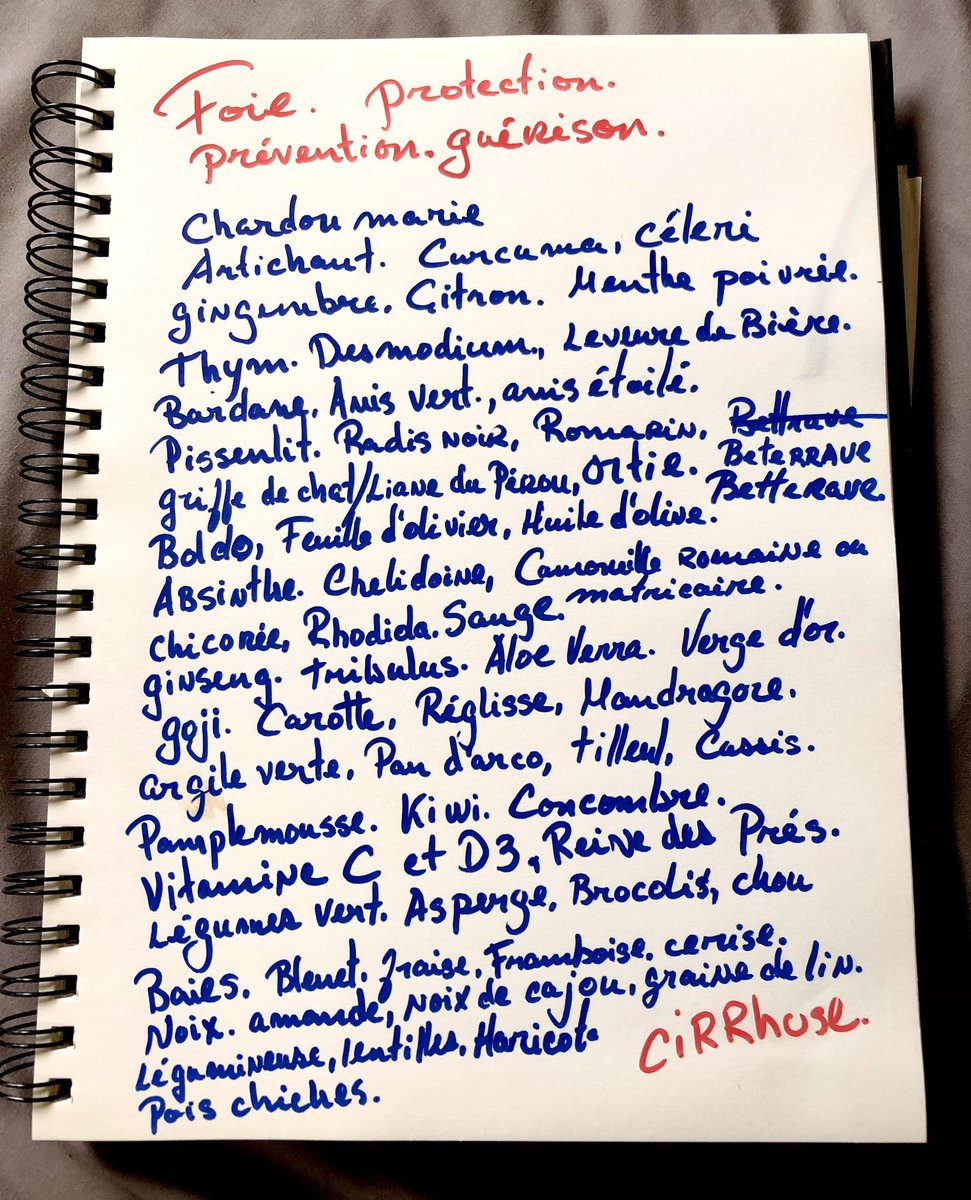 Foie. protection.
prévention. guérison.
Chardon marie
Artichaut. Curcuma, céleri
gingembre. Citron. Menthe poivrée.
Thym. Desmodium., Levure de Bière.
Bardane. Anis vert., anis étoilé.
Pissenlit. Radis noir, Romarin, Bettrave
griffe de chat/Liane du Pérou, ortie. BeteRRAVE
Boldo, Feuille d'olivier, Huile d'olive. Betterave.
Absinthe. Chelidoine, Camomille romaine ou
chicorée, Rhodida. Sauge. matricaire.
ginseng. tribulus. Aloe Verra. Verge d'or.
goji. Carotte, Réglisse, Mandragore.
argile verte. Pau d'arco, tilleul, Cassis.
Pamplemousse. Kiwi. Concombre.
Vitamine C et D3, Reine des Prés.
Légumes vert. Asperge, Brocolis, chou
Baies. Bleuet. fraise. Framboise. cerise.
Noix. amande, noix de cajou, graine de lin.
Légumineuse, lentilles, Haricot
Pois chiches.
CiRRhose.